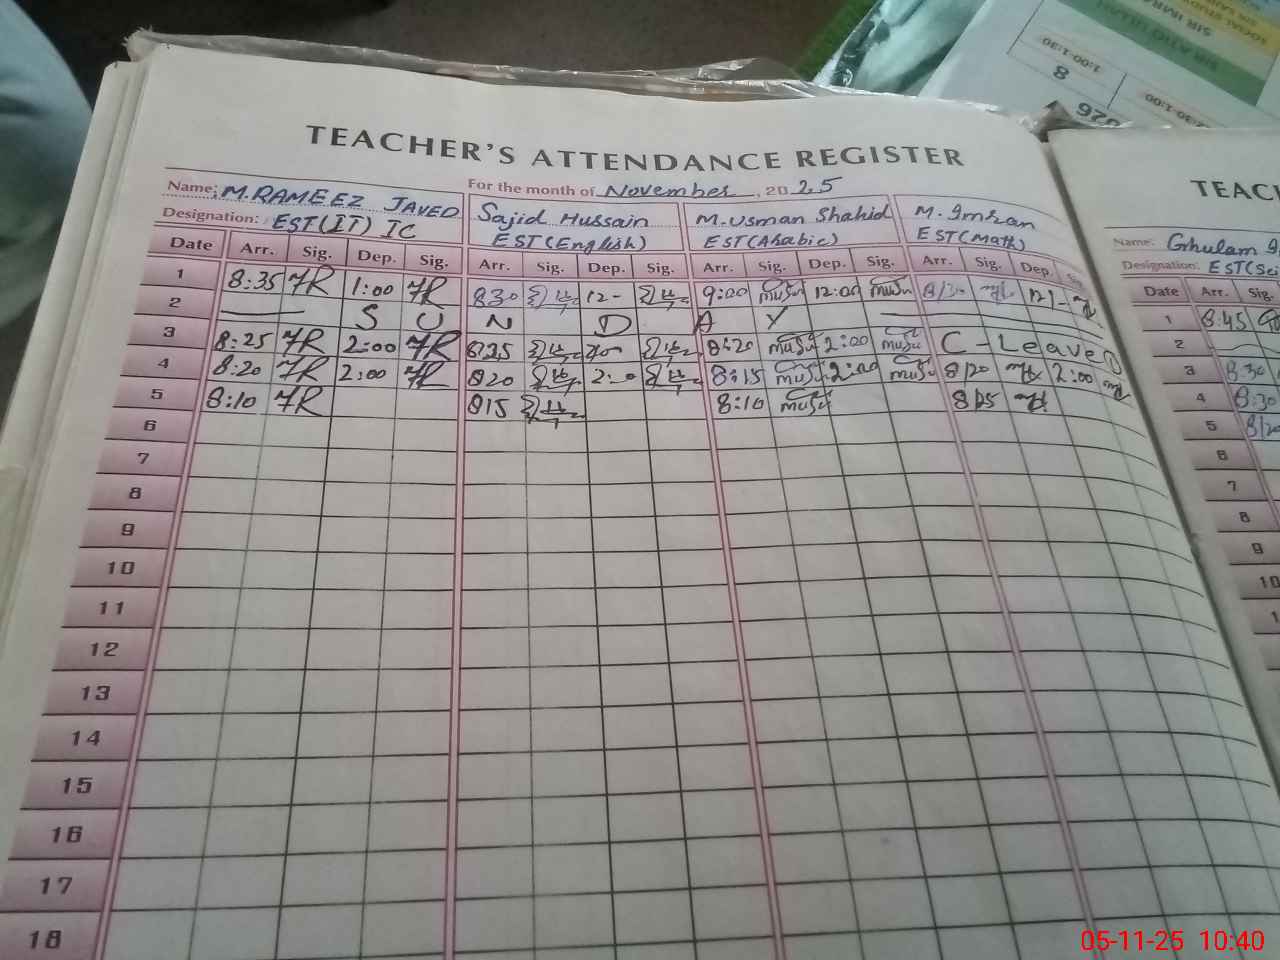 TEACHER'S ATTENDANCE REGISTER
Name: M.RAMEEZ JAVED
For the month of November, 2025
Designation: EST(IT) IC
Sajid Hussain
EST(English)
M.Usman Shahid
EST(Arabic)
M. Imran
EST(Math)
Date Arr. Sig. Dep. Sig. Arr. Sig. Dep. Sig. Arr. Sig. Dep. Sig. Arr. Sig. Dep. Sig.
1 8:35 1:00 830 12- 9:00 12:00 8/30 12/-
2 S U N D A Y
3 8:25 2:00 835 8:20 2:00 C-Leave
4 8:20 2:00 820 8:15 2:00 8/20 2:00
5 8:10 815 8:10 8/25
6
7
8
9
10
11
12
13
14
15
16
17
18
TEACH
Name: Ghulam
Designation: EST(Sci
Date Arr. Sig.
1 8:45
2
3 8:30
4 8:30
5 8/20
6
7
8
9
10
1:00-1:30
8
SIR ATIQ ULLAH
SIR IMRAN
05-11-25 10:40